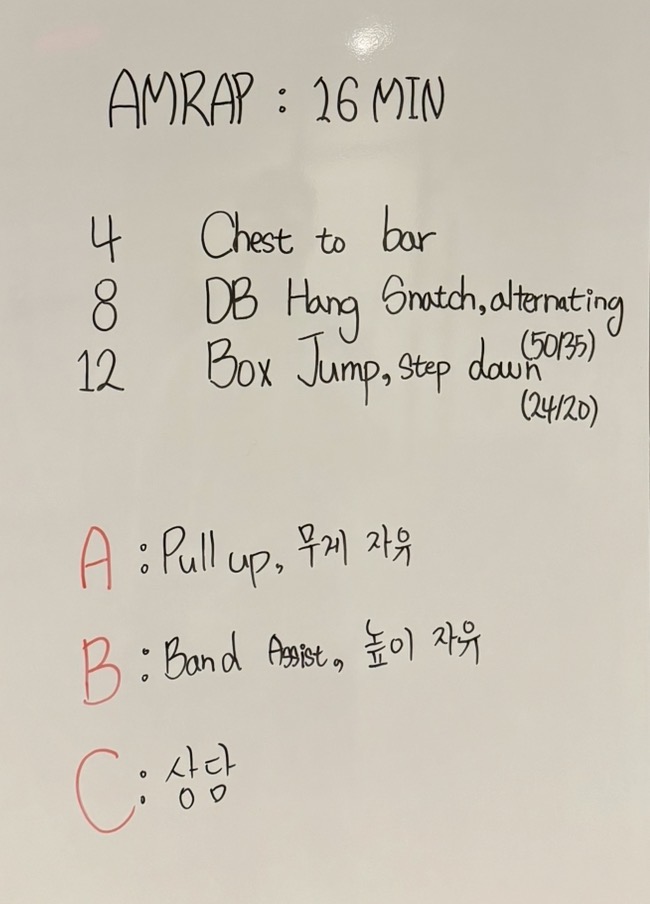 AMRAP : 16 MIN
4 Chest to bar
8 DB Hang Snatch, alternating
(50/35)
12 Box Jump, step down
(24/20)
A : Pull up, 무게 자유
B : Band Assist, 높이 자유
C : 상담